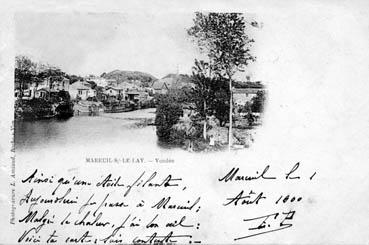 MAREUIL-S/-LE-LAY. - Vendée
Ainsi qu'une étoile filante,
Aujourdhui je passe à Mareuil;
Malgré la chaleur, j'ai bon œil;
Voici ta carte: sois contente:
Mareuil le 1
Août 1900